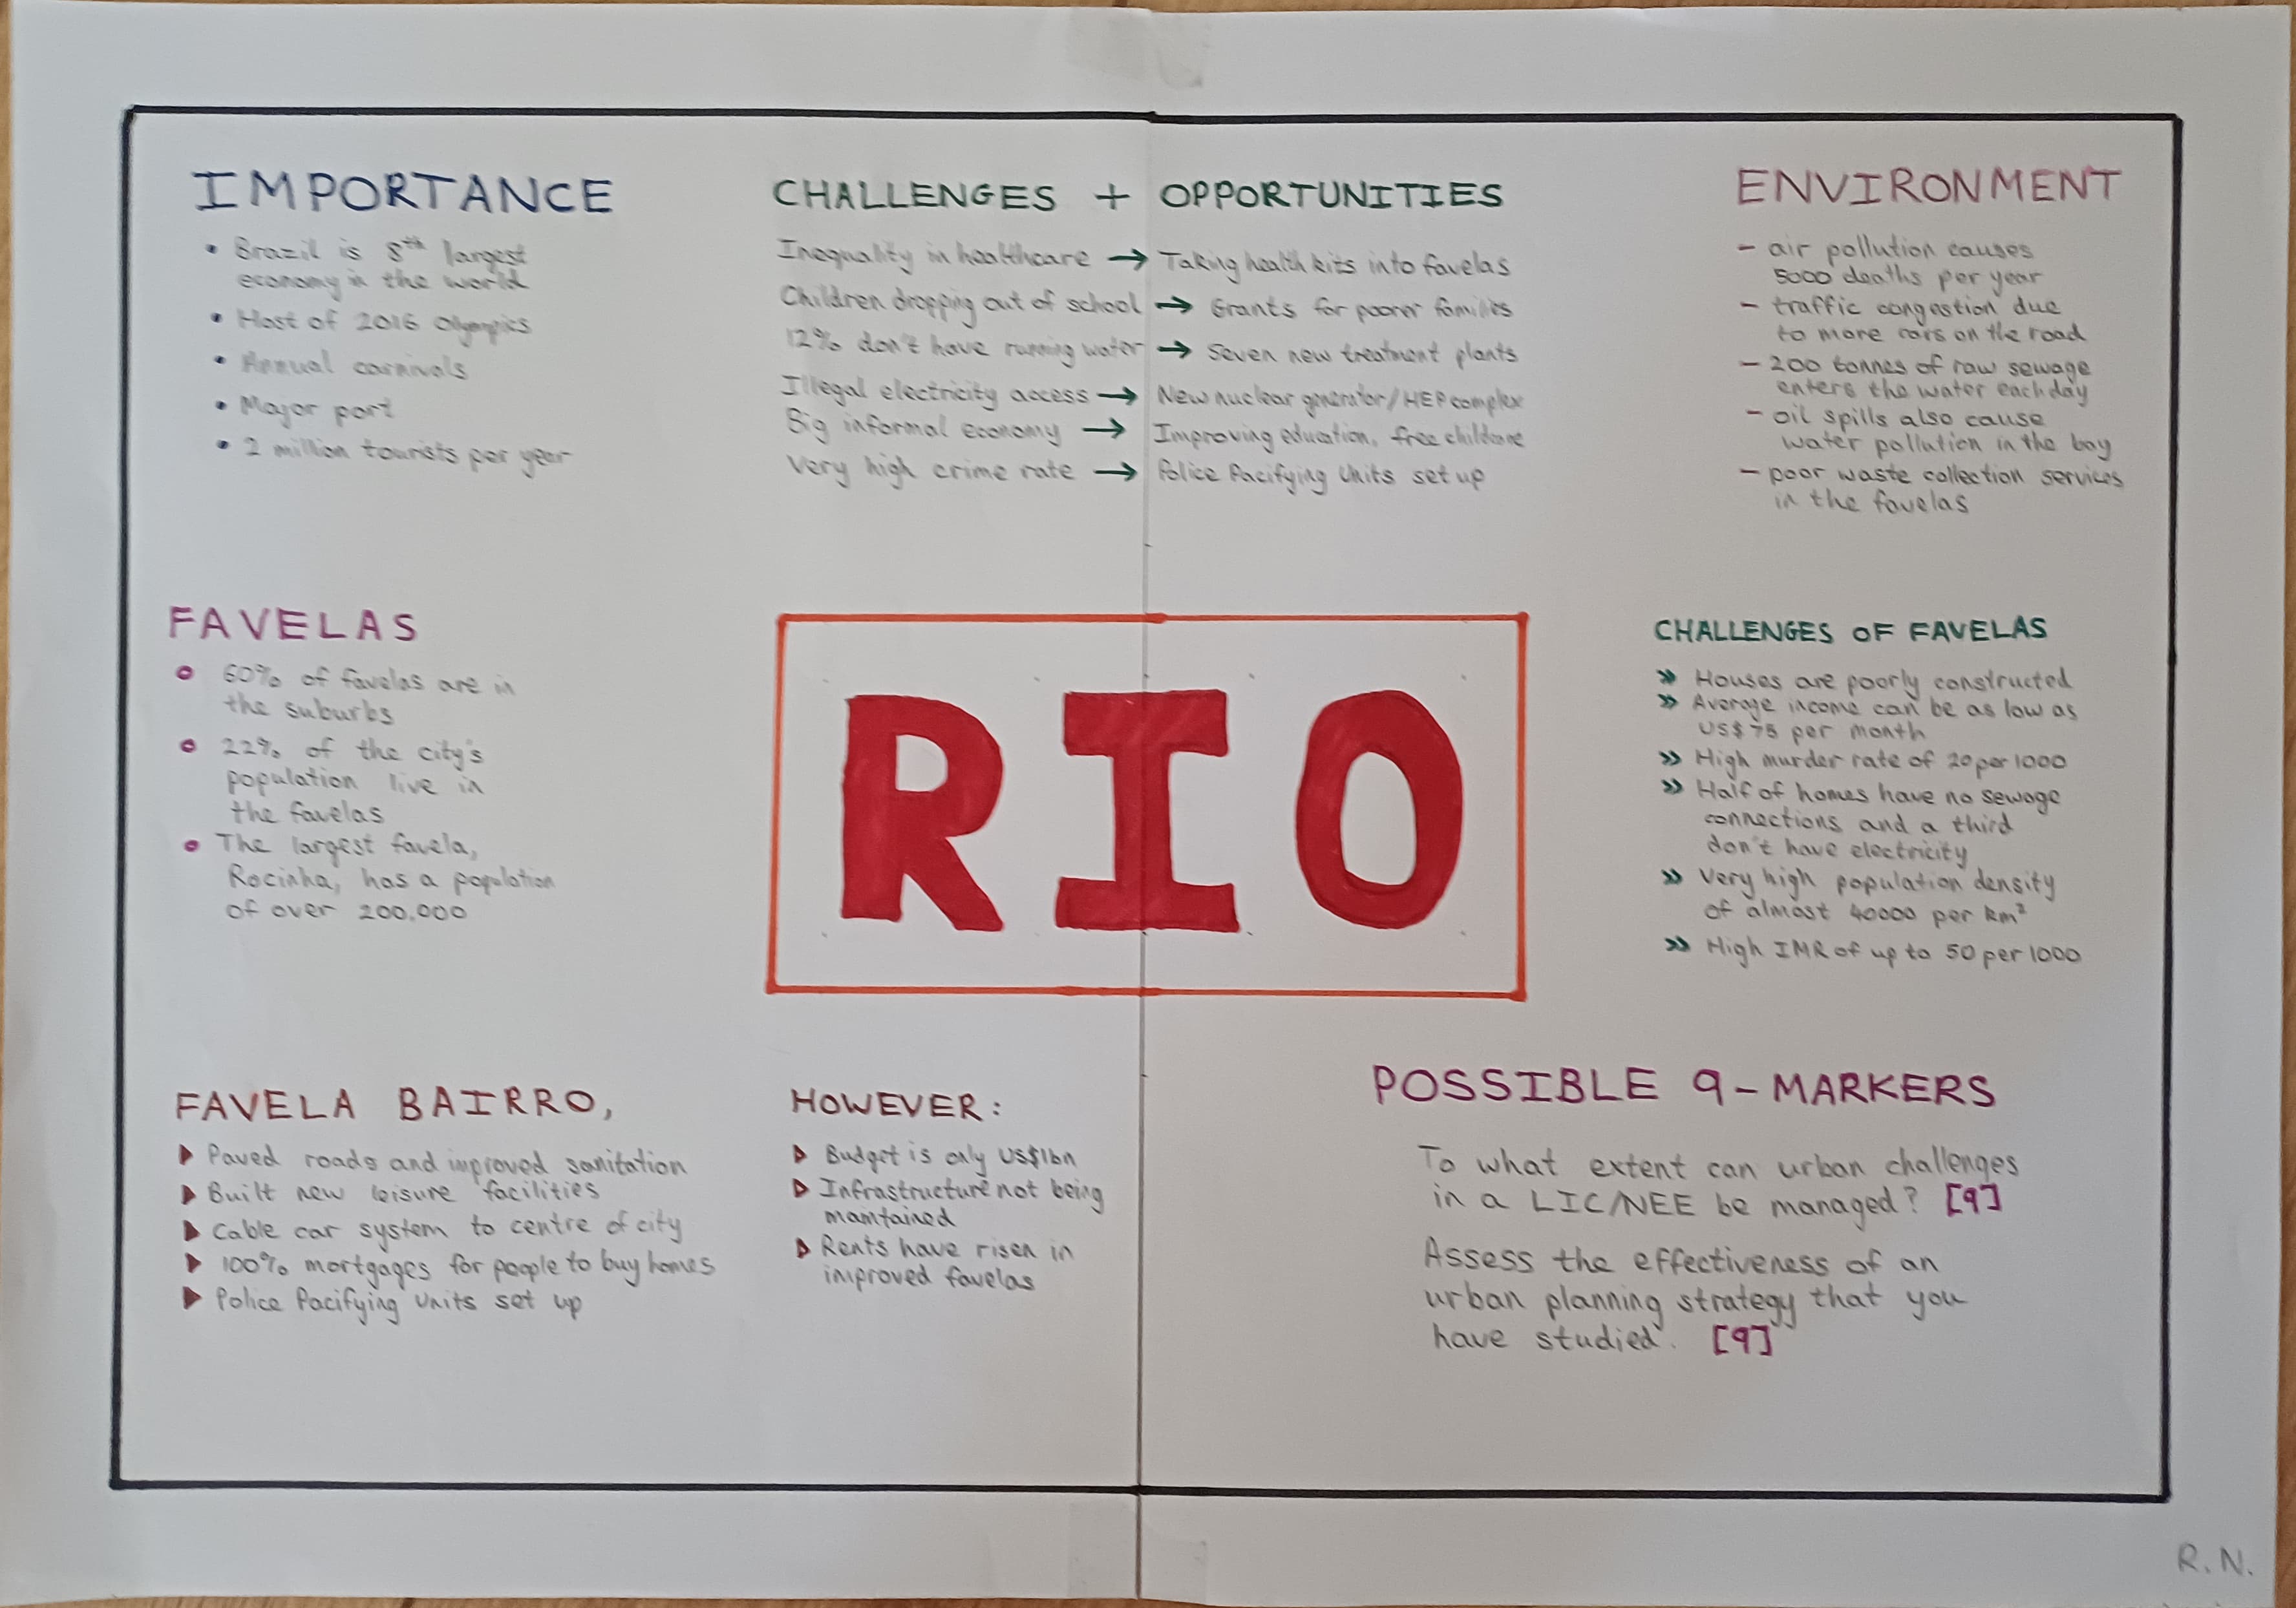 IMPORTANCE
• Brazil is 8th largest
economy in the world
• Host of 2016 Olympics
• Annual carnivals
• Major port
• 2 million tourists per year
CHALLENGES + OPPORTUNITIES
Inequality in healthcare → Taking health kits into favelas
Children dropping out of school → Grants for poorer families
12% don't have running water → Seven new treatment plants
Illegal electricity access → New nuclear generator/HEP complex
Big informal economy → Improving education, free childcare
Very high crime rate → Police Pacifying Units set up
ENVIRONMENT
- air pollution causes
5000 deaths per year
- traffic congestion due
to more cars on the road
- 200 tonnes of raw sewage
enters the water each day
- oil spills also cause
water pollution in the bay
- poor waste collection services
in the favelas
FAVELAS
• 60% of favelas are in
the suburbs
• 22% of the city's
population live in
the favelas
• The largest favela,
Rocinha, has a population
of over 200,000
RIO
CHALLENGES OF FAVELAS
» Houses are poorly constructed
» Average income can be as low as
US$75 per month
» High murder rate of 20 per 1000
» Half of homes have no sewage
connections and a third
don't have electricity
» Very high population density
of almost 40000 per km²
» High IMR of up to 50 per 1000
FAVELA BAIRRO,
▶ Paved roads and improved sanitation
▶ Built new leisure facilities
▶ Cable car system to centre of city
▶ 100% mortgages for people to buy homes
▶ Police Pacifying Units set up
HOWEVER:
▷ Budget is only US$1bn
▷ Infrastructure not being
maintained
▷ Rents have risen in
improved favelas
POSSIBLE 9-MARKERS
To what extent can urban challenges
in a LIC/NEE be managed? [9]
Assess the effectiveness of an
urban planning strategy that you
have studied. [9]
R.N.